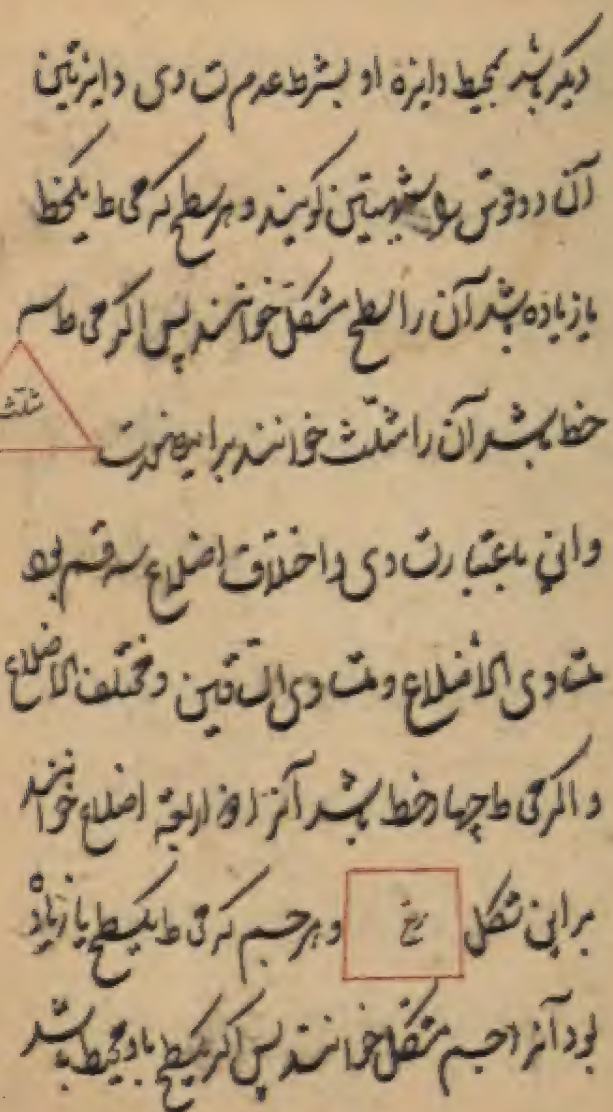 دیکر باشد بمحیط دایره او بشرط عدم تساوی دایرتین
آن دو قوس را شبیهتین کویند و هر سطح که محاط بیکخط
یا زیاده باشد آن را سطح مشکل خوانند پس اکر محاط سه
خط باشد آن را مثلث خوانند براینصورت
مثلث
و این باعتبار تساوی و اختلاف اضلاع سه قسم بود
متساوی الاضلاع و متساوی الساقین و مختلف الاضلاع
و اکر محاط چهار خط باشد آنرا ذو اربعة اضلاع خوانند
بر این شکل
مربع
و هر جسم که محاط بیکسطح یا زیاده
بود آنرا جسم مشکل خوانند پس اکر یکسطح باو محیط باشد